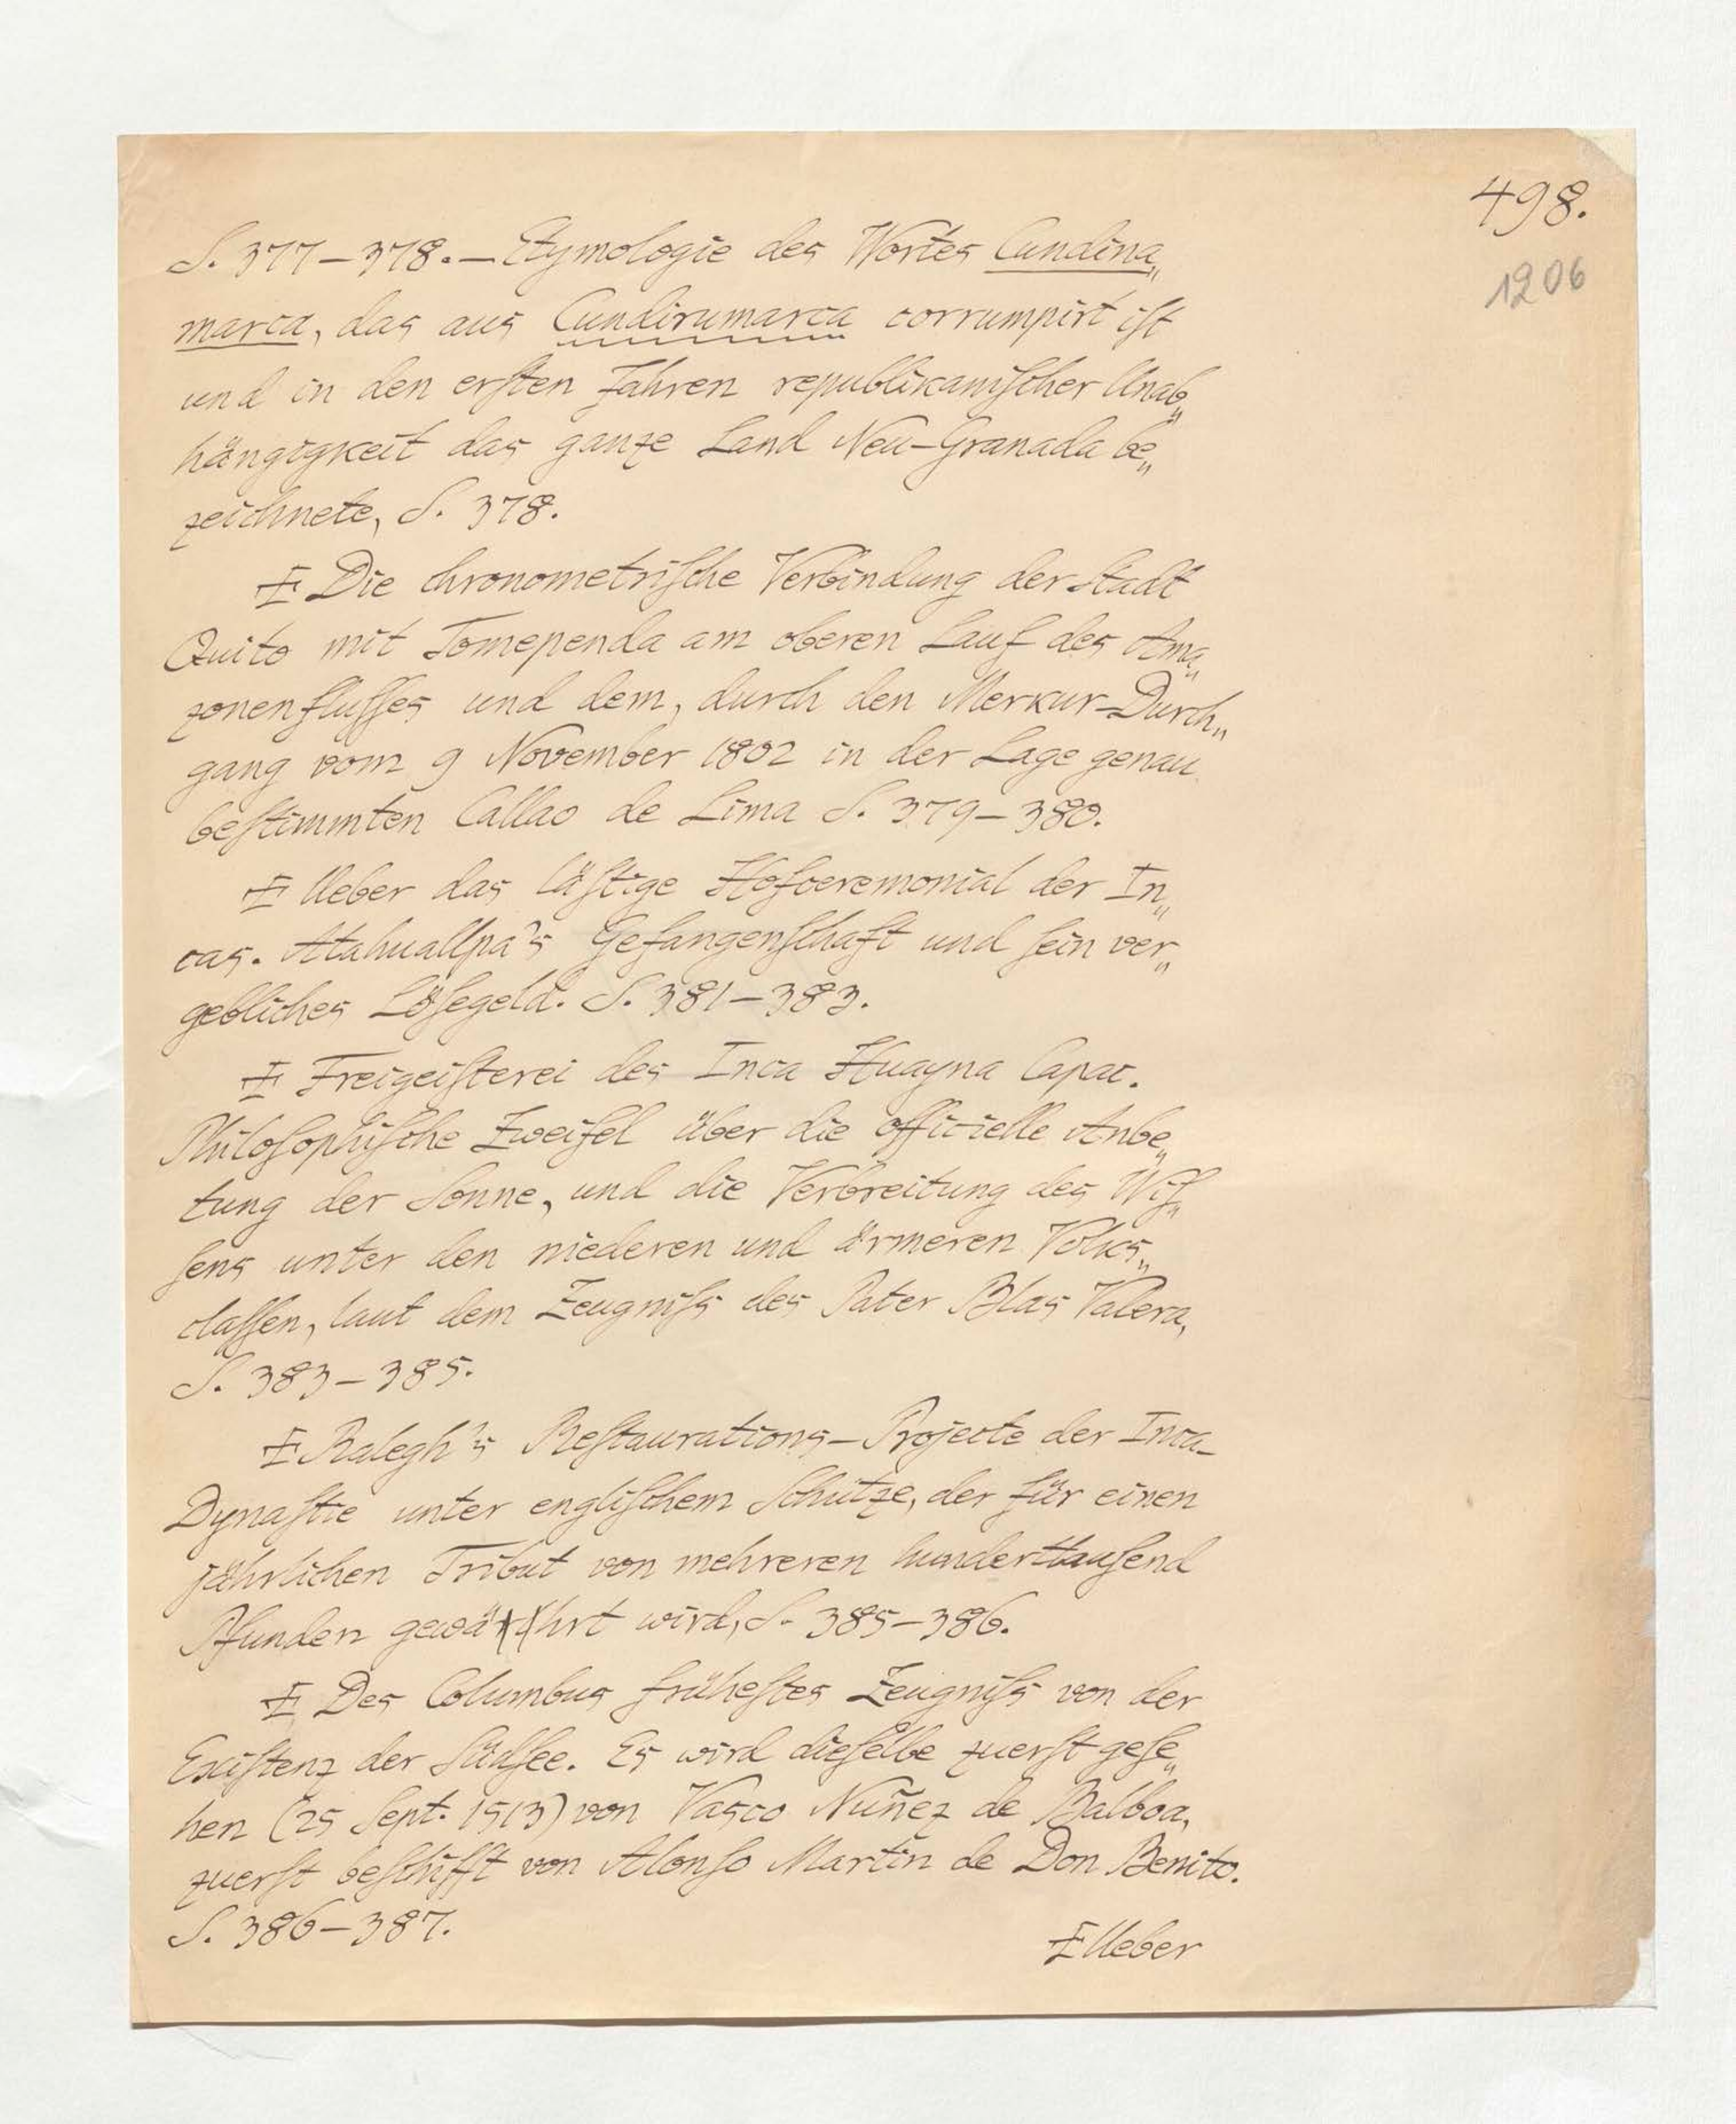 498.
1206
S. 377–378. – Etymologie des Wortes Cundina„
marca, das aus Cundirumarca corrumpirt iſt
und in den erſten Jahren republikaniſcher Unab„
hängigkeit das ganze Land Neu-Granada be„
zeichnete, S. 378.
Die chronometriſche Verbindung der Stadt
Quito mit Tomependa am oberen Lauf des Ama„
zonenfluſſes und dem, durch den Merkur-Durch„
gang vom 9 November 1802 in der Lage genau
beſtimmten Callao de Lima S. 379–380.
Ueber das läſtige Hofceremonial der In„
cas. Atahuallpa's Gefangenſchaft und ſein ver„
gebliches Löſegeld. S. 381–383.
Freigeiſterei des Inca Huayna Capac.
Philoſophiſche Zweifel über die officielle Anbe„
tung der Sonne, und die Verbreitung des Wiſ„
ſens unter den niederen und ärmeren Volks„
claſſen, laut dem Zeugniſs des Pater Blas Valera,
S. 383–385.
Ralegh's Reſtaurations-Projecte der Inca-
Dynaſtie unter engliſchem Schutze, der für einen
jährlichen Tribut von mehreren hunderttauſend
Pfunden gewährt wird, S. 385–386.
Des Columbus früheſtes Zeugniſs von der
Exiſtenz der Südſee. Es wird dieſelbe zuerſt geſe„
hen (25 Sept. 1513) von Vasco Nuñez de Balboa,
zuerſt beſchifft von Alonſo Martin de Don Benito.
S. 386–387.
Ueber